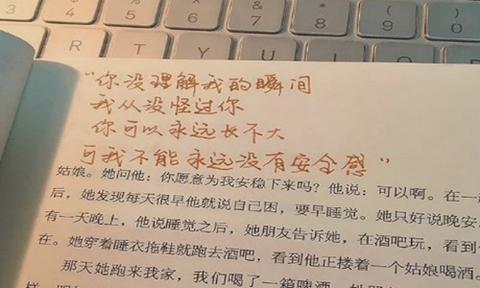 5 6 7 8 9 0
R T Y U I O
“你没理解我的瞬间
我从没怪过你
你可以永远长不大
可我不能永远没有安全感”
姑娘。她问他：你愿意为我安稳下来吗？他说：可以啊。在一起
后，她发现每天很早他就说自己困，要早睡觉。她只好说晚安。
有一天晚上，他说睡觉之后，她朋友告诉她，在酒吧玩，看到他
在。她穿着睡衣拖鞋就跑去酒吧，看到他正搂着一个姑娘喝酒。
那天她跑来我家，我们喝了一箱啤酒，